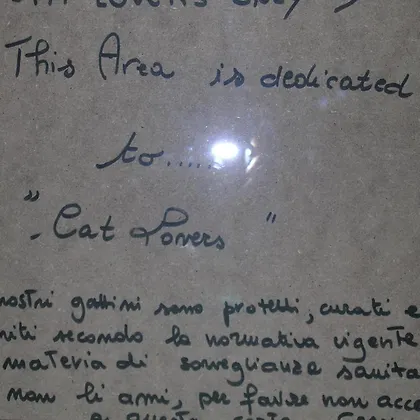 This Area is dedicated
to......
" Cat Lovers "
nostri gattini sono protetti, curati e
secondo la normativa vigente
materia di sorveglianza sanita
non li ami, per favore non acce